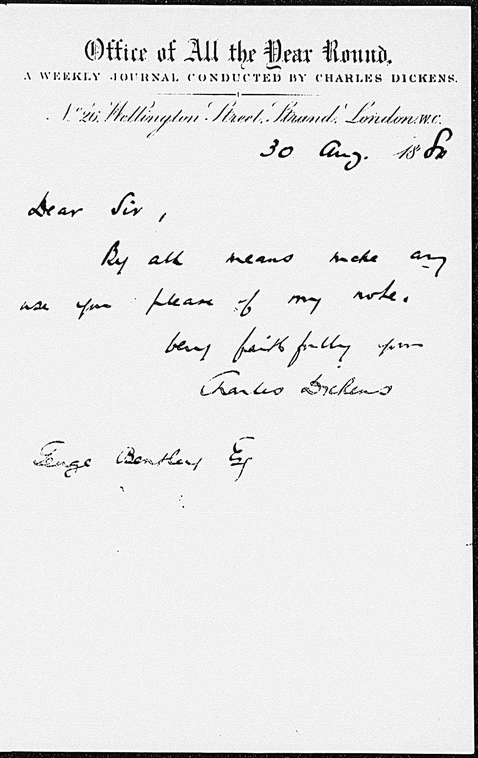 Office of All the Year Round,
A WEEKLY JOURNAL CONDUCTED BY CHARLES DICKENS.
No. 26, Wellington Street, Strand, London. W.C.
30 Aug. 18
Dear Sir,
By all means make any
use you please of my note.
very faithfully yours
Charles Dickens
George Bentley Esq